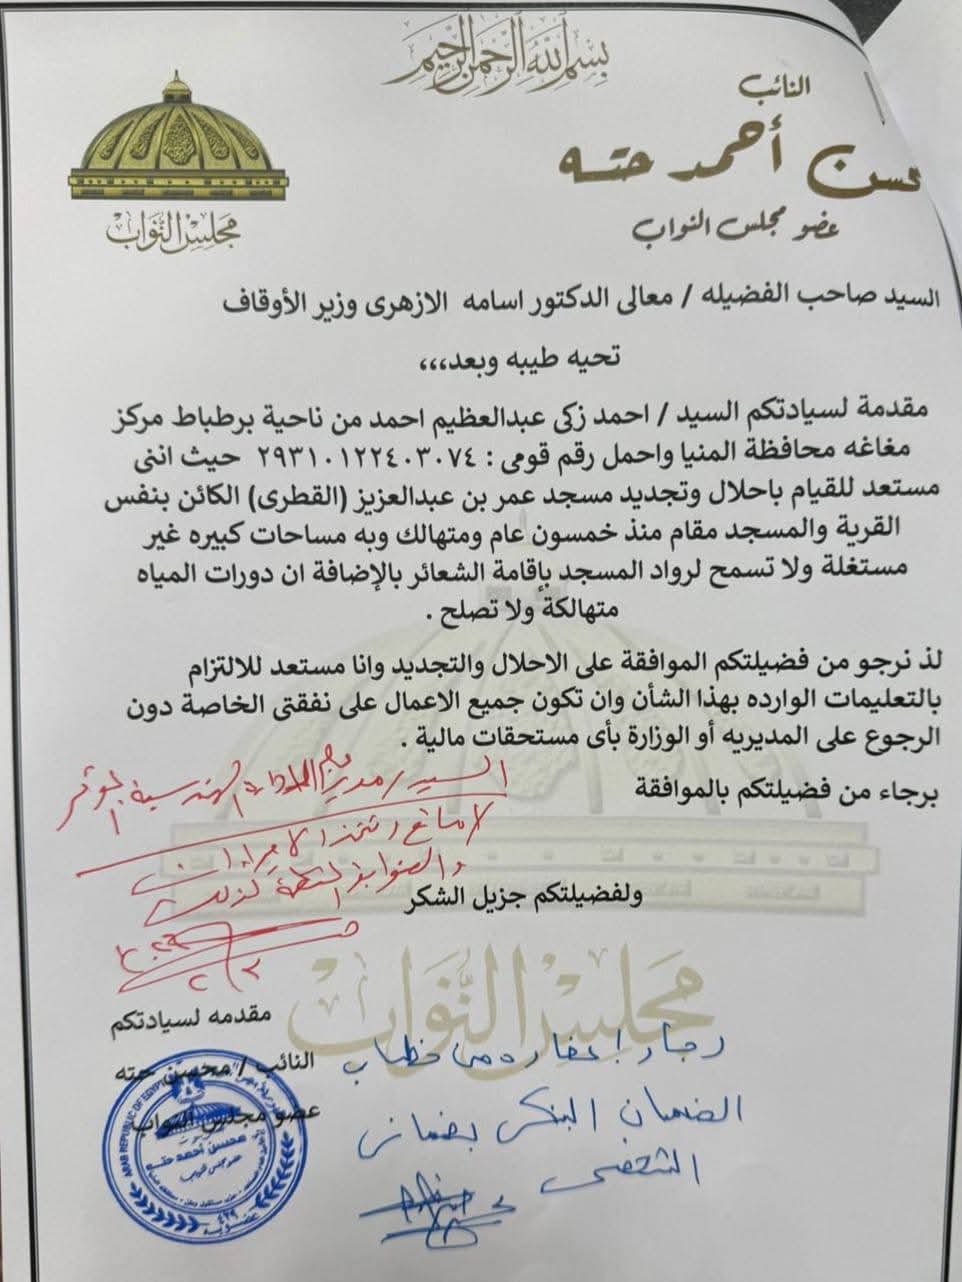 بسم الله الرحمن الرحيم
النائب
حسن أحمد حته
عضو مجلس النواب
مجلس النواب
السيد صاحب الفضيله / معالى الدكتور اسامه الازهرى وزير الأوقاف
تحيه طيبه وبعد،،،
مقدمة لسيادتكم السيد / احمد زكى عبدالعظيم احمد من ناحية برطباط مركز
مغاغه محافظة المنيا واحمل رقم قومى : ٢٩٣١٠١٢٢٤٠٣٠٧٤ حيث اننى
مستعد للقيام باحلال وتجديد مسجد عمر بن عبدالعزيز (القطرى) الكائن بنفس
القرية والمسجد مقام منذ خمسون عام ومتهالك وبه مساحات كبيره غير
مستغلة ولا تسمح لرواد المسجد بإقامة الشعائر بالإضافة ان دورات المياه
متهالكة ولا تصلح .
لذ نرجو من فضيلتكم الموافقة على الاحلال والتجديد وانا مستعد للالتزام
بالتعليمات الوارده بهذا الشأن وان تكون جميع الاعمال على نفقتى الخاصة دون
الرجوع على المديريه أو الوزارة بأى مستحقات مالية .
برجاء من فضيلتكم بالموافقة
السيد / مدير عام الادارة الهندسية الموقر
لا مانع وتتخذ الاجراءات
والضوابط المنظمة لذلك
ولفضيلتكم جزيل الشكر
مقدمه لسيادتكم
النائب / محسن حته
عضو مجلس النواب
رجاء اعفاءه من خطاب
الضمان البنكى بضمانى
الشخصى
مجلس النواب
ARAB REPUBLIC OF EGYPT
محسن أحمد حته
٤٣٩
عضوية